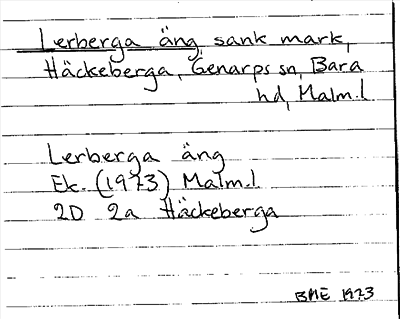 Lerberga äng, sank mark,
Häckeberga, Genarps sn, Bara
hd, Malm.l.
Lerberga äng
Ek. (1973) Malm.l.
2D 2a Häckeberga
BME 1973